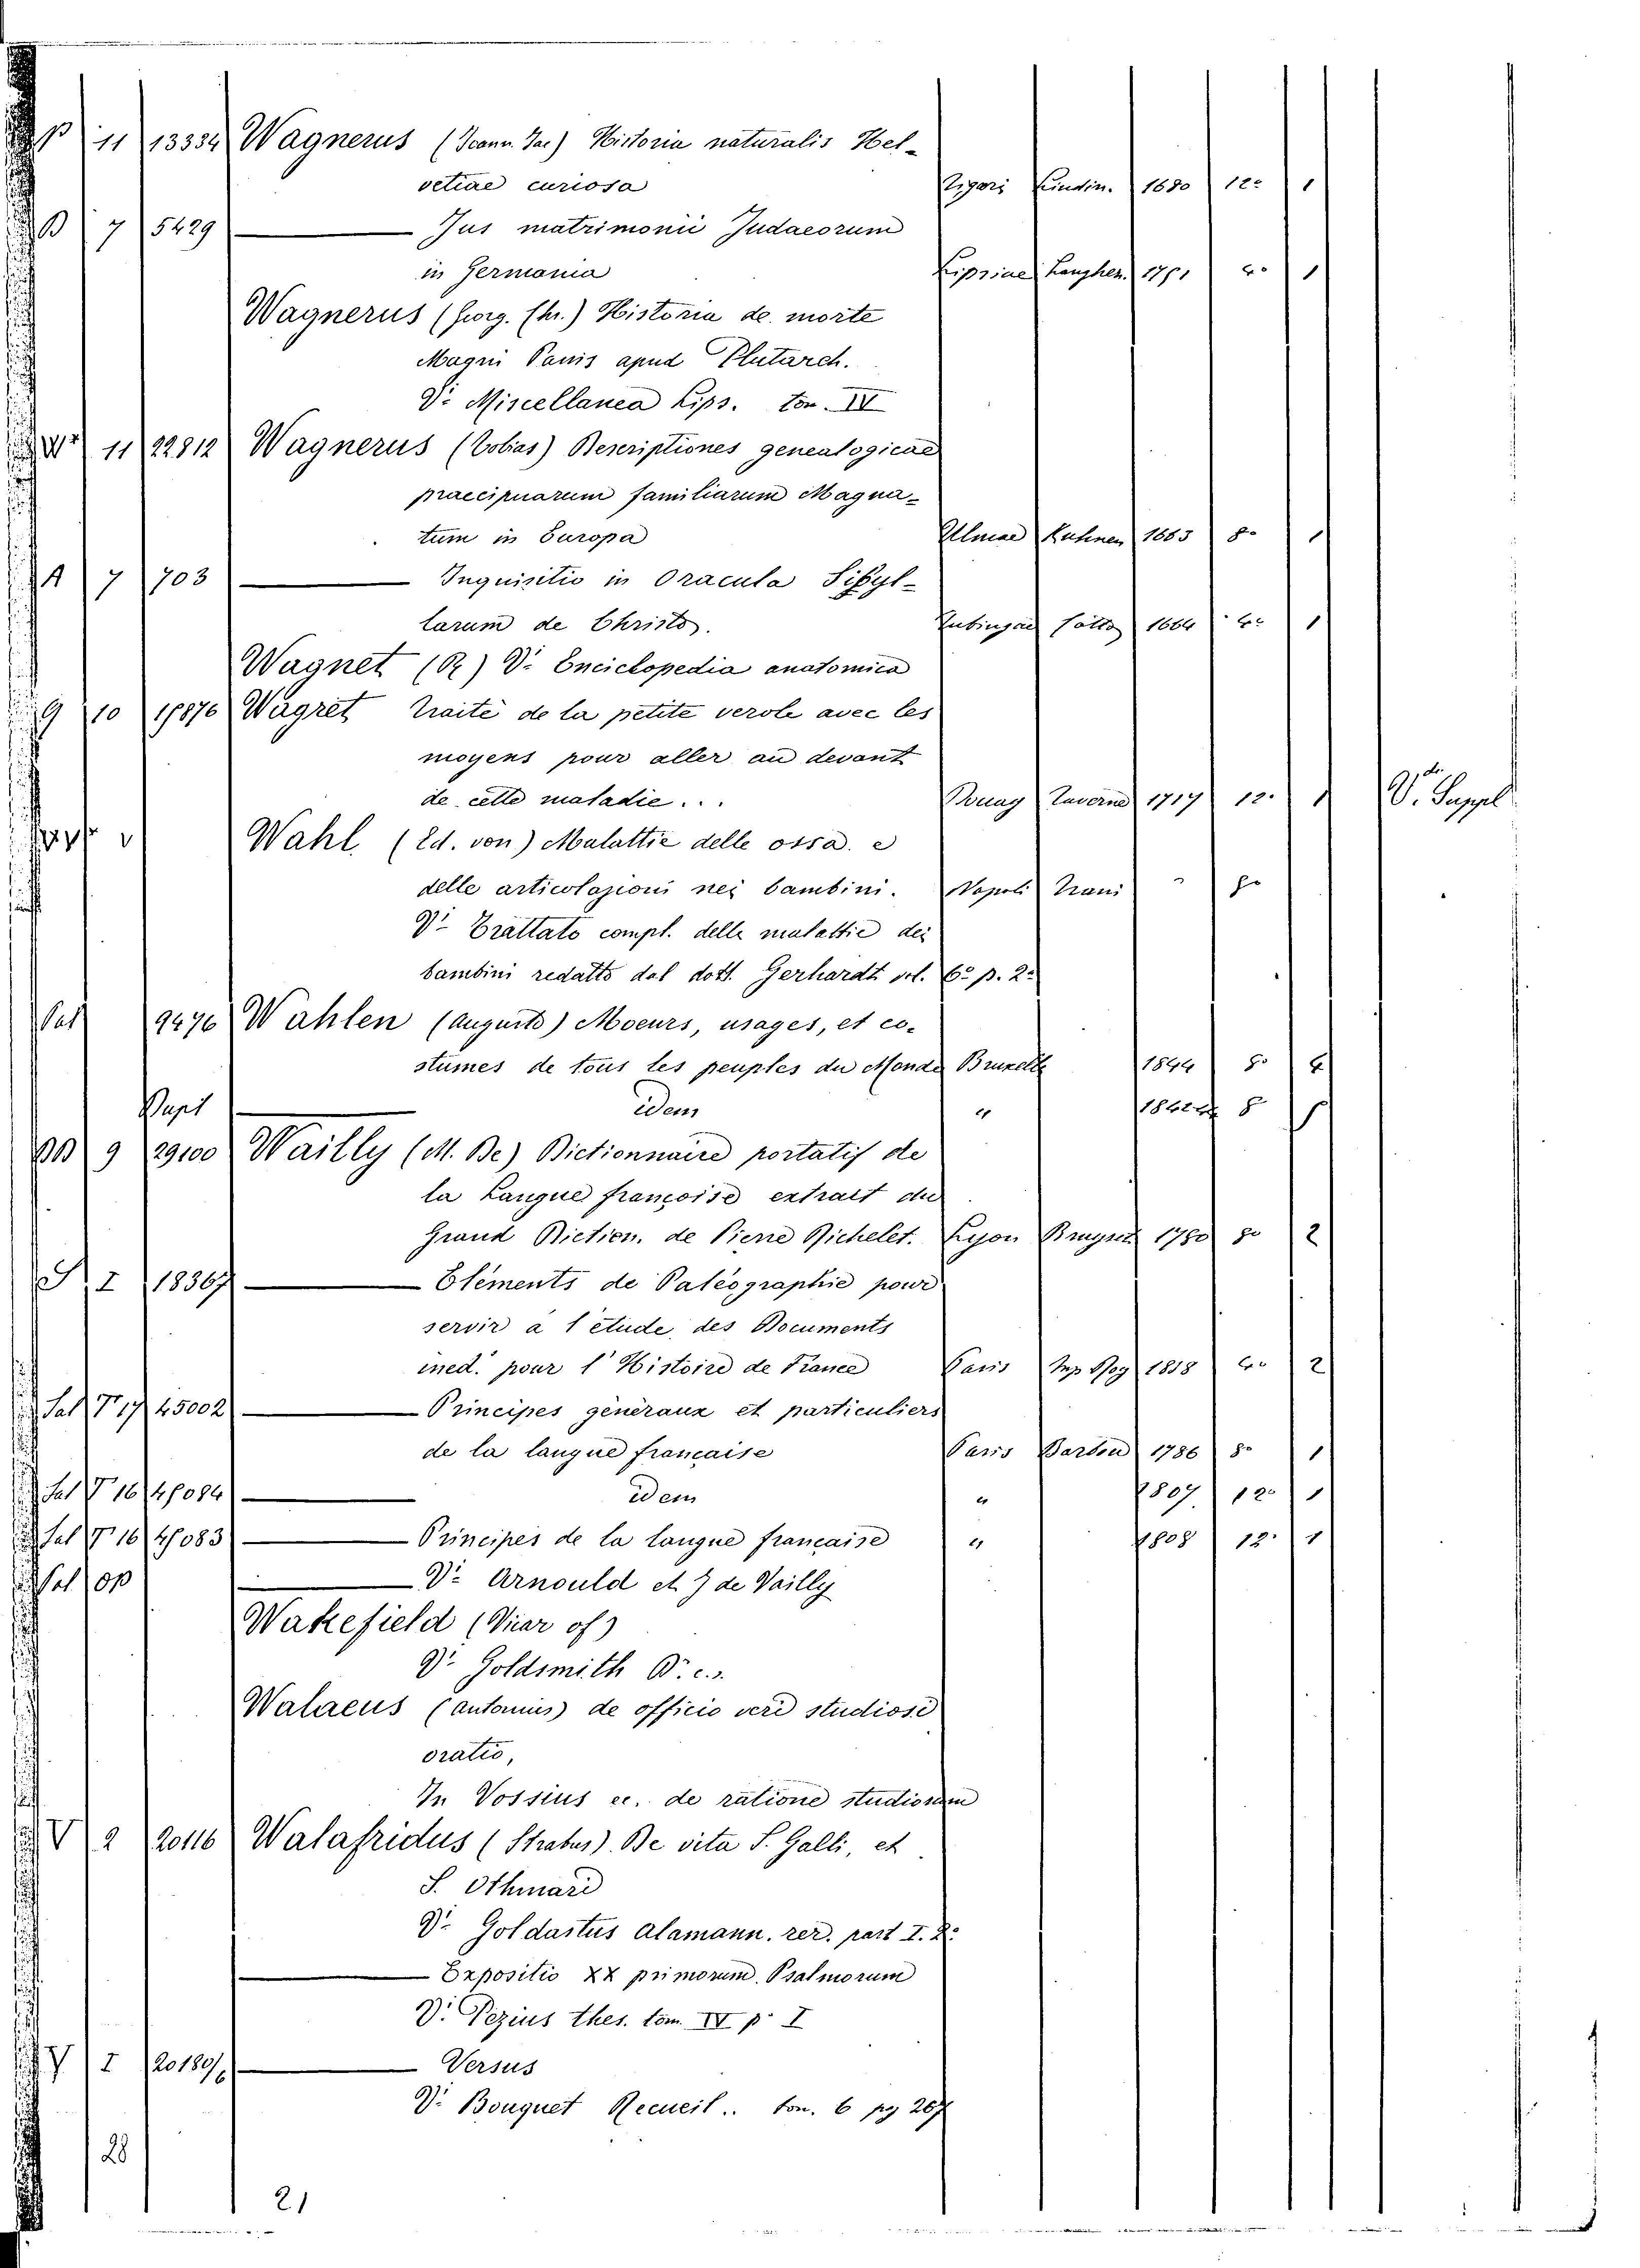 P 11 13334 Wagnerus (Joann. Jac) Historia naturalis Hel-
vetiae curiosa Tiguri Lindin. 1680 12° 1
B 7 5429 Jus matrimonii Judaeorum
in Germania Lipsiae Langhen. 4° 1
Wagnerus (Georg. Chr.) Historia de morte
Magni Panis apud Plutarch.
V. Miscellanea Lips. tom. IV
11 22812 Wagnerus (Tobias) Descriptiones genealogicae
praecipuarum familiarum Magna-
tum in Europa Ulmae Kuhnen 1663 8° 1
A 7 703 Inquisitio in Oracula Sibyl-
larum de Christo. Tubingae Cotta 1664 4° 1
Wagnet (R) V. Enciclopedia anatomica
G 10 17876 Wagret Traité de la petite verole avec les
moyens pour aller au devant
de cette maladie... Douay Taverne 1717 12. 1 V. Suppl
Wahl (Ed. von) Malattie delle ossa e
delle articolazioni nei bambini. Napoli Trani " 8°
V. Trattato compl. delle malattie dei
bambini redatto dal dott. Gerhardt vol. 6° p. 2°
Sal 9476 Wahlen (Auguste) Moeurs, usages, et co-
stumes de tous les peuples du Monde Bruxelle 1844 8° 4
idem " 8
BB 9 29100 Wailly (M. De) Dictionnaire portatif de
la Langue françoise extrait du
Grand Diction. de Pierre Richelet. Lyon Bruyset 1780 8° 2
I 18367 Eléments de Paléographie pour
servir a l'etude des Documents
ined. pour l'Histoire de France Paris Imp Roy 1838 4° 2
Sal T 17 45002 Principes généraux et particuliers
de la langue française Paris Barbou 1786 8° 1
Sal T 16 47084 idem " 1807. 12° 1
Sal T 16 47083 Principes de la langue française " 1808 12. 1
Sal op V. Arnould et J de Vailly
Wakefield (Vicar of)
V. Goldsmith D. c.s.
Walaeus (Antonius) de officio veri studiosi
oratio,
In Vossius ec. de ratione studiorum
V 2 20116 Walafridus (Strabus) De vita S. Galli, et
S. Othmari
V. Goldastus Alamann. rer. part I. 2.
Expositio XX primorum Psalmorum
V. Pezius thes. tom. IV p. I
Y I 20180/6 Versus
V. Bouquet Recueil.. tom. 6 pg 267
28
21